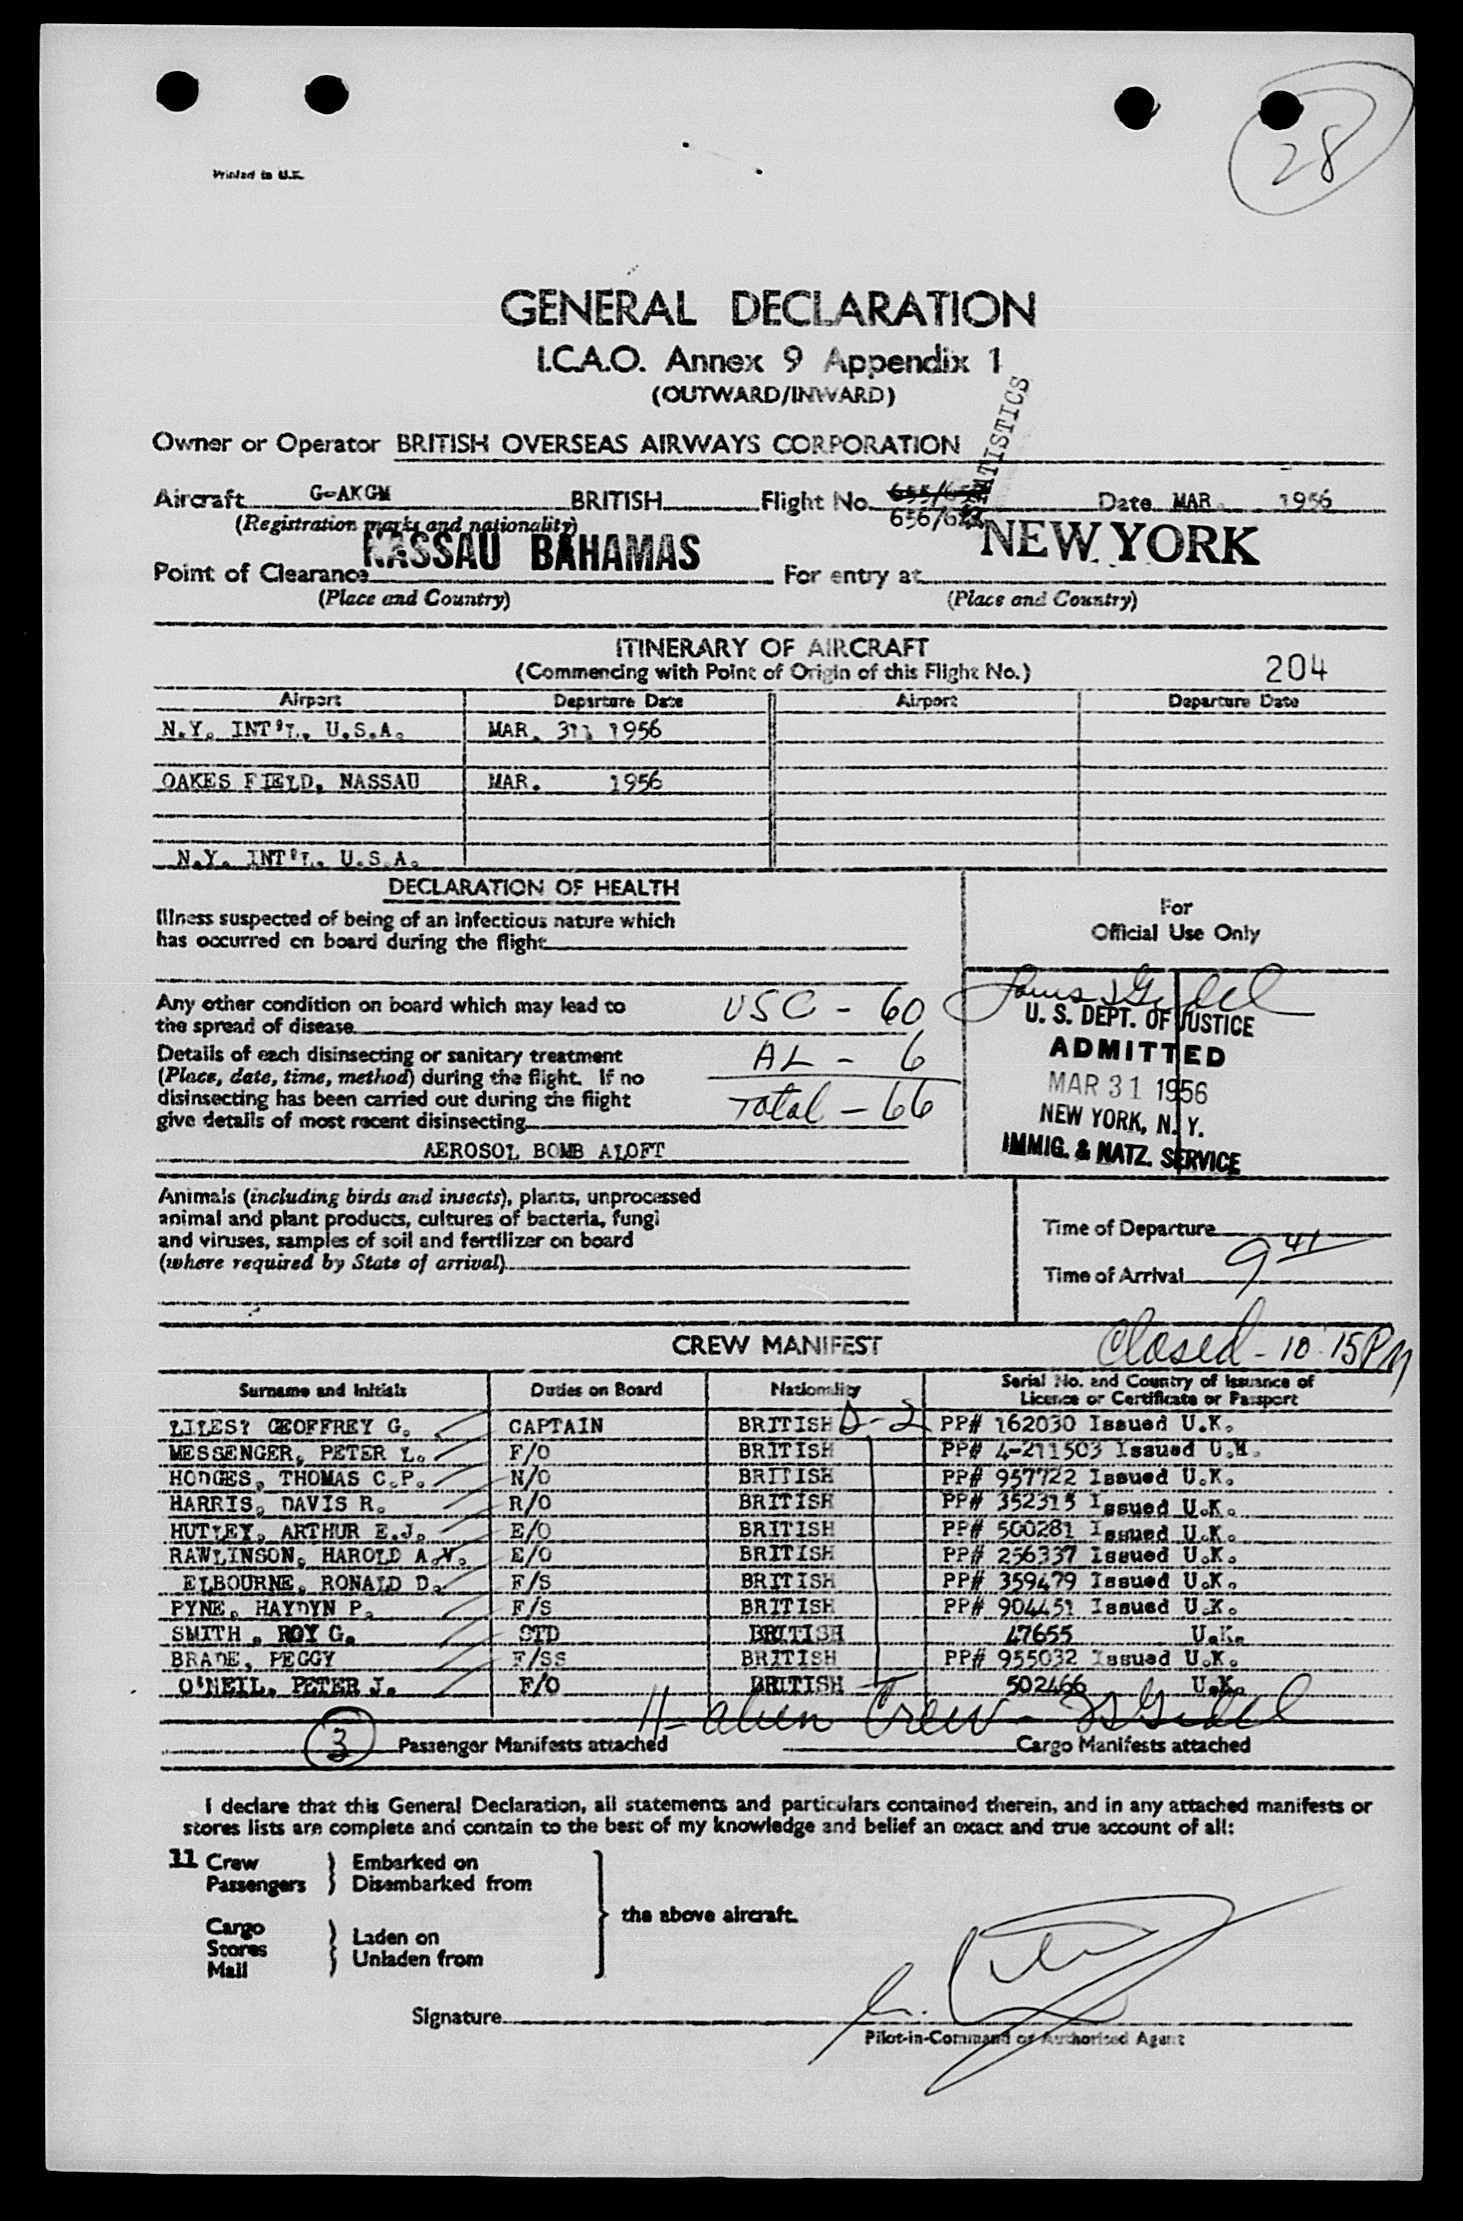 28
Printed in U.K.
GENERAL DECLARATION
I.C.A.O. Annex 9 Appendix 1
(OUTWARD/INWARD)
Owner or Operator BRITISH OVERSEAS AIRWAYS CORPORATION
Aircraft G-AKGM BRITISH Flight No. Date MAR. 1956
(Registration marks and nationality) 656/
NASSAU BAHAMAS NEW YORK
Point of Clearance For entry at
(Place and Country) (Place and Country)
ITINERARY OF AIRCRAFT
(Commencing with Point of Origin of this Flight No.) 204
Airport Departure Date Airport Departure Date
N.Y. INT'L. U.S.A. MAR. 31, 1956
OAKES FIELD, NASSAU MAR. 1956
N.Y. INT'L. U.S.A.
DECLARATION OF HEALTH
Illness suspected of being of an infectious nature which
has occurred on board during the flight
For
Official Use Only
Any other condition on board which may lead to
the spread of disease
USC - 60
Details of each disinsecting or sanitary treatment
(Place, date, time, method) during the flight. If no
disinsecting has been carried out during the flight
give details of most recent disinsecting
AL - 6
Total - 66
AEROSOL BOMB ALOFT
U. S. DEPT. OF JUSTICE
ADMITTED
MAR 31 1956
NEW YORK, N. Y.
IMMIG. & NATZ. SERVICE
Animals (including birds and insects), plants, unprocessed
animal and plant products, cultures of bacteria, fungi
and viruses, samples of soil and fertilizer on board
(where required by State of arrival)
Time of Departure
Time of Arrival 9 41
CREW MANIFEST
Closed - 10:15PM
Surname and Initials Duties on Board Nationality Serial No. and Country of Issuance of
Licence or Certificate or Passport
GEOFFREY G. CAPTAIN BRITISH D-2 PP# 162030 Issued U.K.
MESSENGER, PETER L. F/O BRITISH PP# 4-211503 Issued U.K.
HODGES, THOMAS C.P. N/O BRITISH PP# 957722 Issued U.K.
HARRIS, DAVIS R. R/O BRITISH PP# 352315 Issued U.K.
HUTLEY, ARTHUR E.J. E/O BRITISH PP# 500281 Issued U.K.
RAWLINSON, HAROLD A.V. E/O BRITISH PP# 256337 Issued U.K.
ELBOURNE, RONALD D. F/S BRITISH PP# 359479 Issued U.K.
PYNE, HAYDYN P. F/S BRITISH PP# 904451 Issued U.K.
SMITH, ROY G. STD BRITISH 47655 U.K.
BRADE, PEGGY F/SS BRITISH PP# 955032 Issued U.K.
O'NEIL, PETER J. F/O BRITISH 502466 U.K.
11- alien Crew -
3 Passenger Manifests attached Cargo Manifests attached
I declare that this General Declaration, all statements and particulars contained therein, and in any attached manifests or
stores lists are complete and contain to the best of my knowledge and belief an exact and true account of all:
11 Crew Embarked on
Passengers Disembarked from
the above aircraft.
Cargo
Stores Laden on
Mail Unladen from
Signature
Pilot-in-Command or Authorised Agent